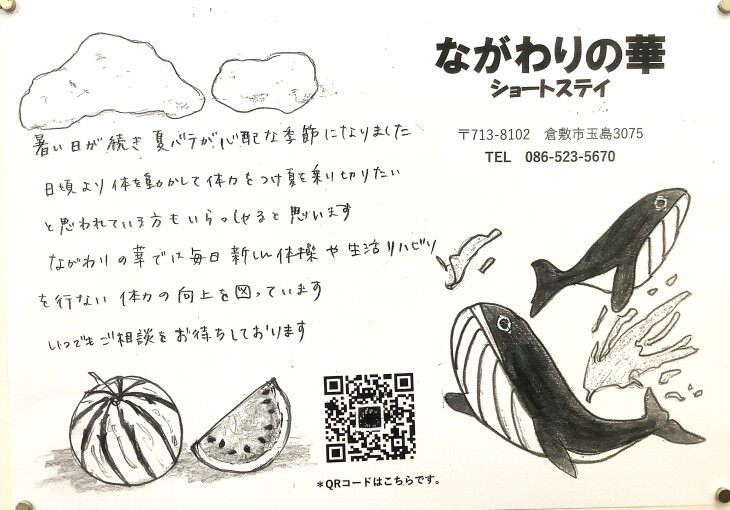 ながわりの華
ショートステイ
〒713-8102 倉敷市玉島3075
TEL 086-523-5670
暑い日が続き 夏バテが心配な季節になりました
日頃より体を動かして体力をつけ夏を乗り切りたい
と思われている方もいらっしゃると思います
ながわりの華では毎日新しい体操や生活リハビリ
を行ない体力の向上を図っています
いつでもご相談をお待ちしております
*QRコードはこちらです。